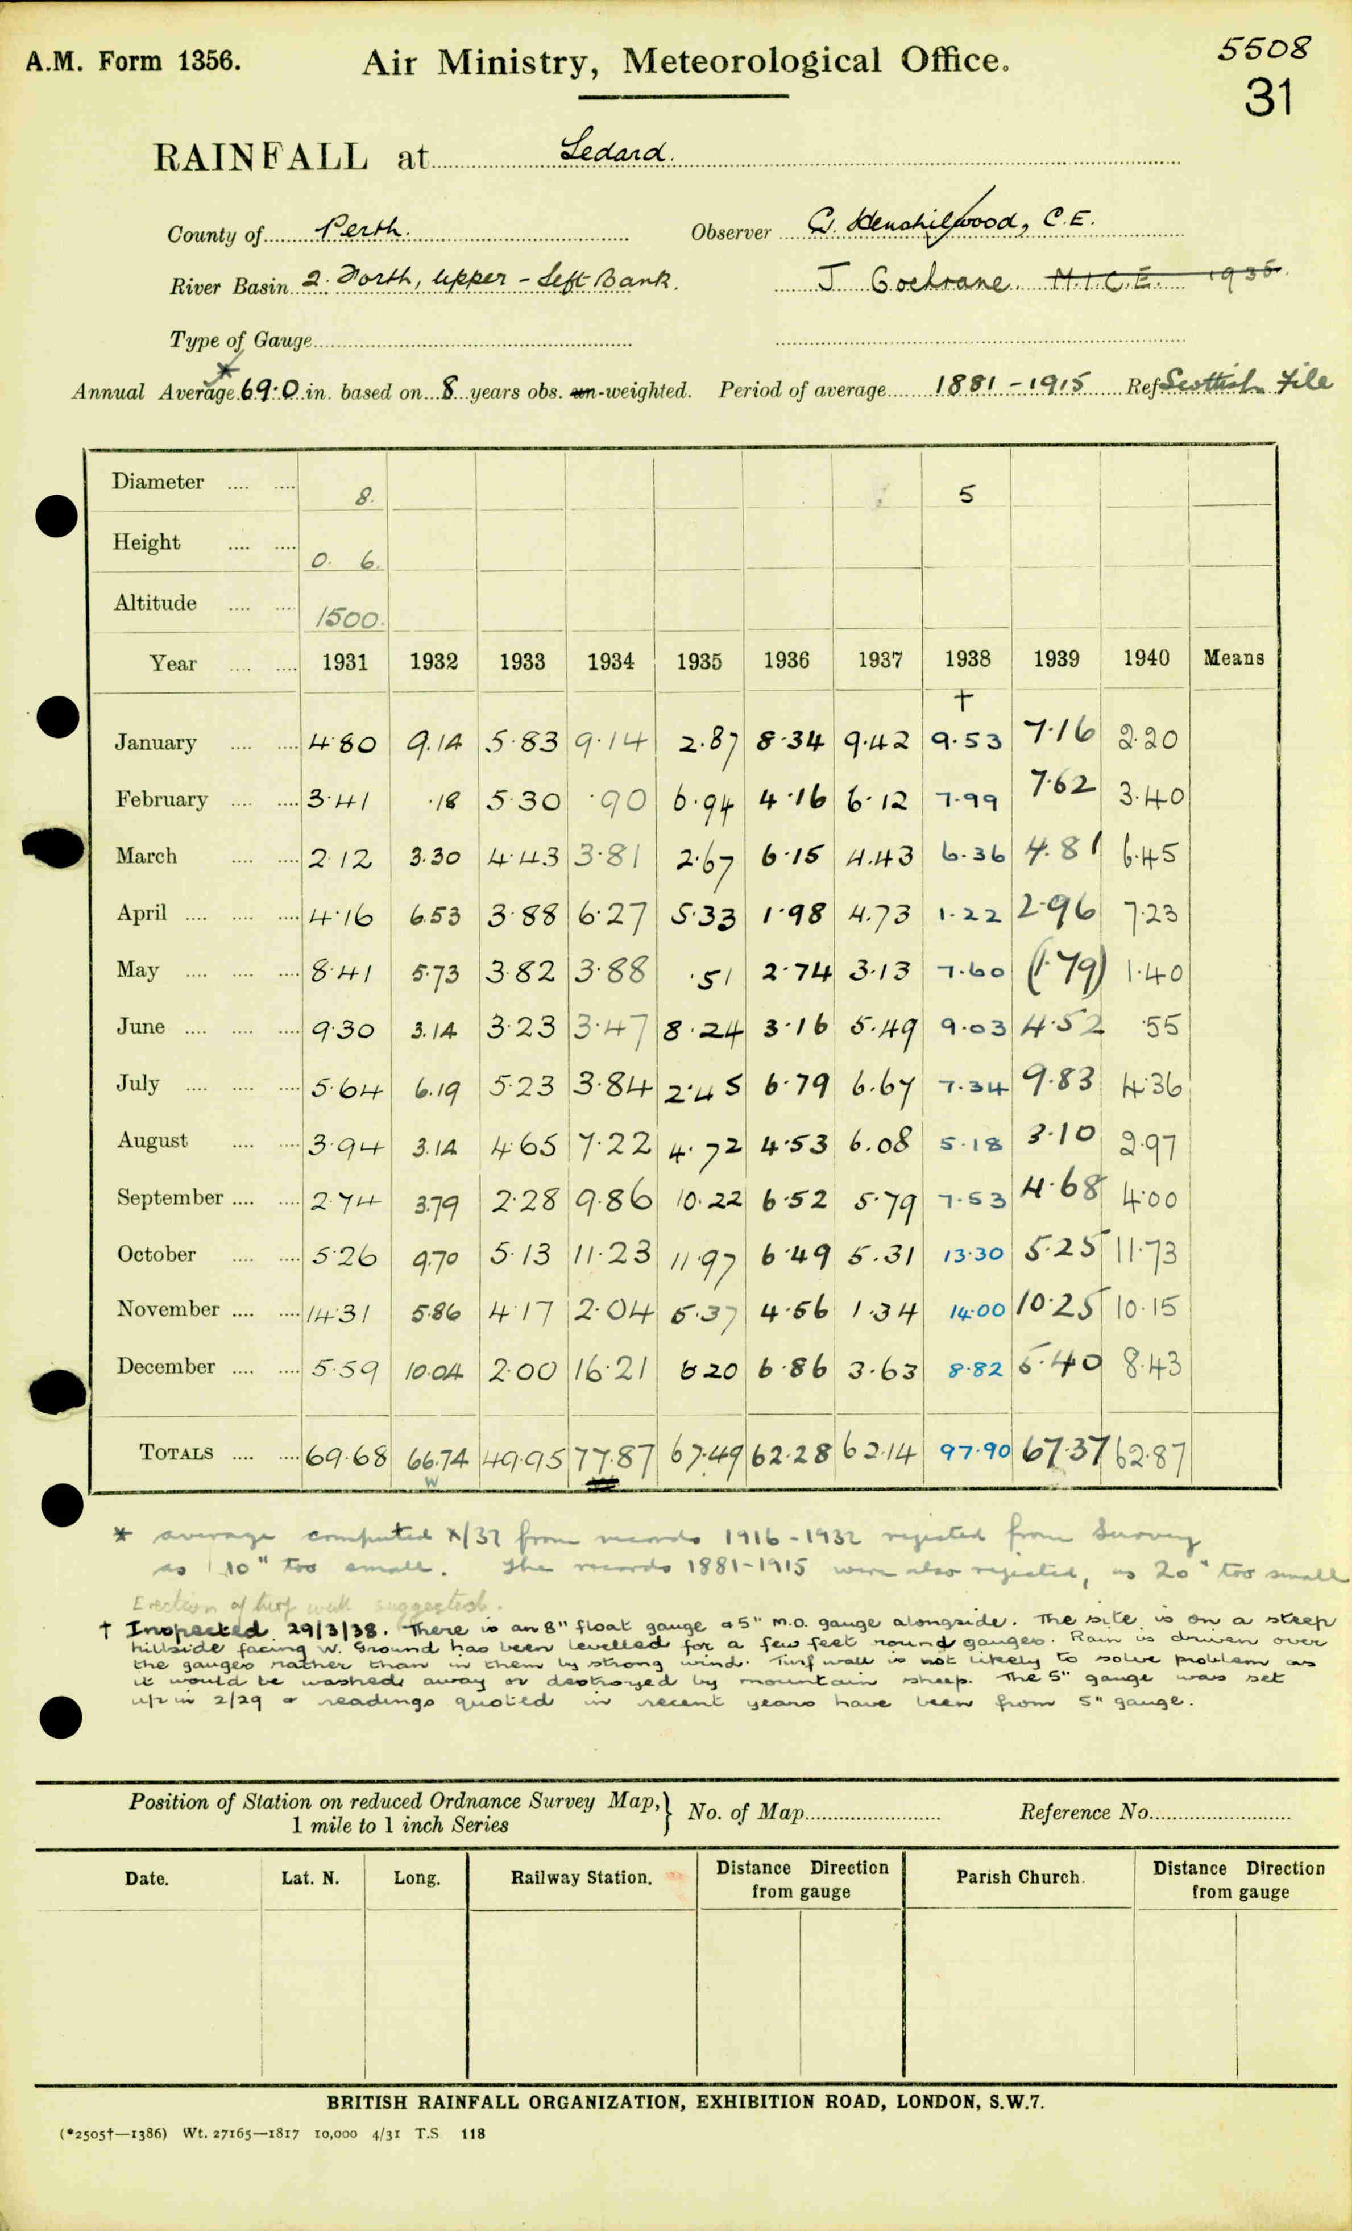 A.M. Form 1356.
Air Ministry, Meteorological Office.
5508
31
RAINFALL at Ledard.
County of Perth. Observer G. Henshilwood, C.E.
River Basin 2. Forth, Upper - Left Bank. J Cochrane M.I.C.E. 1936
Type of Gauge
Annual Average * 69.0 in. based on 8 years obs. un-weighted. Period of average 1881-1915 Ref Scottish File
Diameter 8. 5
Height 0. 6.
Altitude 1500.
Year 1931 1932 1933 1934 1935 1936 1937 1938 1939 1940 Means
†
January 4.80 9.14 5.83 9.14 2.87 8.34 9.42 9.53 7.16 2.20
February 3.41 .18 5.30 .90 6.94 4.16 6.12 7.99 7.62 3.40
March 2.12 3.30 4.43 3.81 2.67 6.15 4.43 6.36 4.81 6.45
April 4.16 6.53 3.88 6.27 5.33 1.98 4.73 1.22 2.96 7.23
May 8.41 5.73 3.82 3.88 .51 2.74 3.13 7.60 (1.79) 1.40
June 9.30 3.14 3.23 3.47 8.24 3.16 5.49 9.03 4.52 .55
July 5.64 6.19 5.23 3.84 2.45 6.79 6.67 7.34 9.83 4.36
August 3.94 3.14 4.65 7.22 4.72 4.53 6.08 5.18 3.10 2.97
September 2.74 3.79 2.28 9.86 10.22 6.52 5.79 7.53 4.68 4.00
October 5.26 9.70 5.13 11.23 11.97 6.49 5.31 13.30 5.25 11.73
November 14.31 5.86 4.17 2.04 5.37 4.56 1.34 14.00 10.25 10.15
December 5.59 10.04 2.00 16.21 6.20 6.86 3.63 8.82 5.40 8.43
TOTALS 69.68 66.74 49.95 77.87 67.49 62.28 62.14 97.90 67.37 62.87
W
* average computed X/37 from records 1916-1932 rejected from Survey
as 10" too small. The records 1881-1915 were also rejected, as 20" too small
Erection of turf wall suggested.
† Inspected 29/3/38. There is an 8" float gauge & 5" M.O. gauge alongside. The site is on a steep
hillside facing W. Ground has been levelled for a few feet round gauges. Rain is driven over
the gauges rather than in them by strong wind. Turf wall is not likely to solve problem as
it would be washed away or destroyed by mountain sheep. The 5" gauge was set
up in 2/29 & readings quoted in recent years have been from 5" gauge.
Position of Station on reduced Ordnance Survey Map, } No. of Map Reference No.
1 mile to 1 inch Series
Date. Lat. N. Long. Railway Station. Distance Direction from gauge Parish Church. Distance Direction from gauge
BRITISH RAINFALL ORGANIZATION, EXHIBITION ROAD, LONDON, S.W.7.
(*2505†—1386) Wt. 27165—1817 10,000 4/31 T.S 118